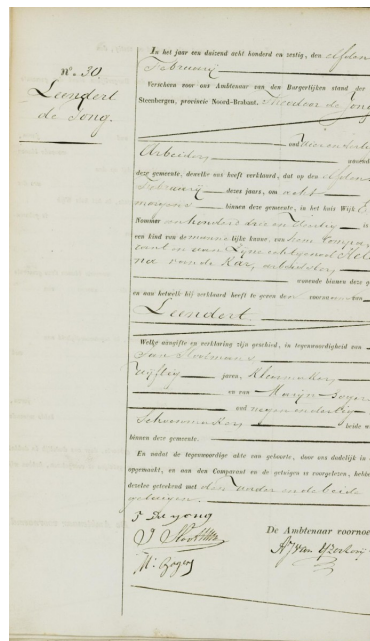 N° 30.
Leendert
de Jong.
In het jaar een duizend acht honderd en zestig, den elfden
Februarij
Verscheen voor ons Ambtenaar van den Burgerlijken stand der
Steenbergen, provincie Noord-Brabant, Theodoor de Jong
oud
Arbeider
deze gemeente, dewelke ons heeft verklaard, dat op den elfden
Februarij dezes jaars, om acht
morgens binnen deze gemeente, in het huis Wijk E
Nommer een honderd drie en
een kind van de mannelijke kunne, van hem Comparant
en van zijne echtgenoot Hele
na van de Kar, arbeidster
wonende binnen deze g
en aan hetwelk hij verklaard heeft te geven den voornaam van
Leendert
Welke aangifte en verklaring zijn geschied, in tegenwoordigheid van
Jan
vijftig jaren, Kleermaker
en van Marijn Bogers
oud negen en dertig
Schoenmaker beide w
binnen deze gemeente.
En nadat de tegenwoordige akte van geboorte, door ons dadelijk in
opgemaakt, en aan den Comparant en de getuigen is voorgelezen, hebben
dezelve geteekend met den vader en de beide
getuigen.
T De jong
De Ambtenaar voornoe
M: Bogers